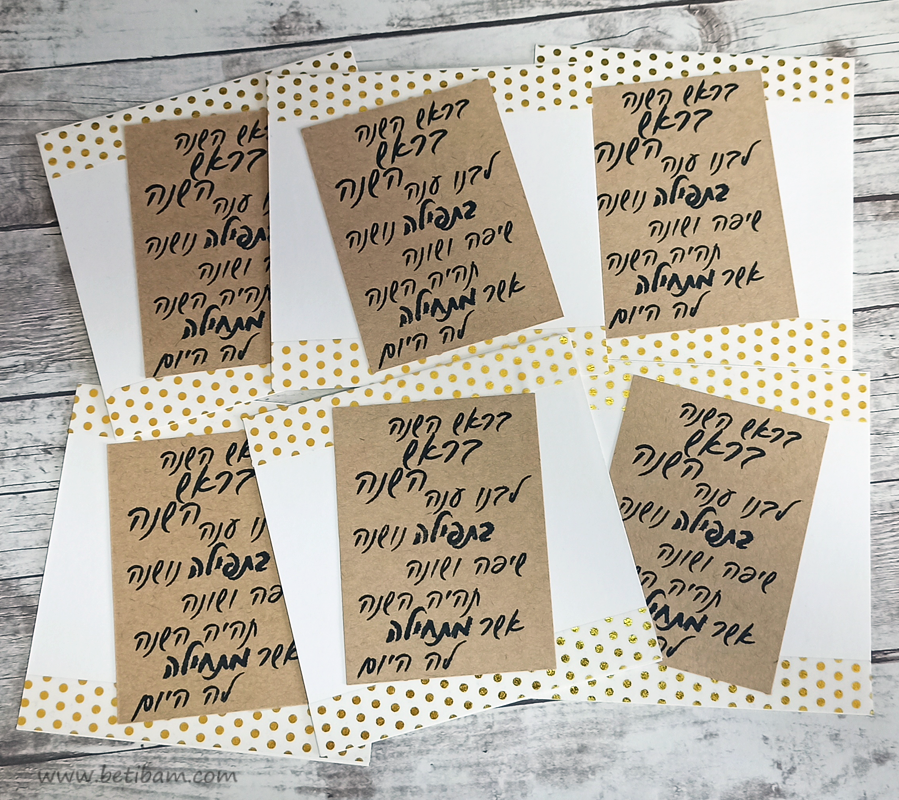 השנה
בראש
השנה
ענה
בתפילה נושנה
ושונה
תהיה השנה
מתחילה
לה היום
בראש השנה
בראש
השנה
לבנו ענה
בתפילה נושנה
שיפה ושונה
תהיה השנה
אשר מתחילה
לה היום
בראש השנה
בראש
השנה
לבנו ענה
בתפילה נושנה
שיפה ושונה
תהיה השנה
אשר מתחילה
לה היום
השנה
בראש
השנה
ענה
בתפילה נושנה
ושונה
תהיה השנה
אשר מתחילה
לה היום
בראש השנה
בראש
השנה
לבנו ענה
בתפילה נושנה
שיפה ושונה
תהיה השנה
אשר מתחילה
לה היום
בראש השנה
בראש
השנה
לבנו ענה
בתפילה נושנה
שיפה ושונה
תהיה
אשר
לה
www.betibam.com